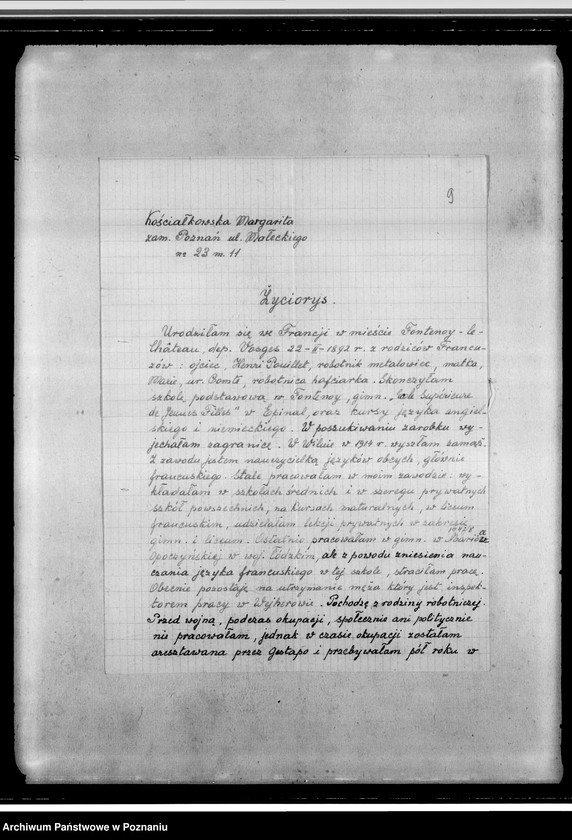 9
Kościałkowska Margarita
zam. Poznań ul. Małeckiego
nr 23 m. 11
Życiorys.
Urodziłam się we Francji w mieście Fontenoy-le-
Château, dep. Vosges 22-II-1892 r. z rodziców Francu-
zów: ojciec, Henri Pouillet, robotnik metalowiec, matka,
Marie, ur. Comte, robotnica hafciarka. Skończyłam
szkołę podstawową w Fontenoy, gimn. „Ecole Supérieure
de Jeunes Filles" w Epinal, oraz kursy języka angiel-
skiego i niemieckiego. W poszukiwaniu zarobku wy-
jechałam zagranicę. W Wilnie w 1914 r. wyszłam zamąż.
Z zawodu jestem nauczycielką języków obcych, głównie
francuskiego. Stale pracowałam w moim zawodzie: wy-
kładałam w szkołach średnich i w szeregu prywatnych
szkół powszechnych, na kursach maturalnych, w liceum
francuskim, udzielałam lekcji prywatnych w zakresie
gimn. i liceum. Ostatnio pracowałam w gimn. w
Opoczyńskiej w woj. łódzkim, ale z powodu zniesienia nau-
czania języka francuskiego w tej szkole, straciłam pracę.
Obecnie pozostaję na utrzymaniu męża który jest inspek-
torem pracy w Wejherowie. Pochodzę z rodziny robotniczej.
Przed wojną, podczas okupacji, społecznie ani politycznie
nie pracowałam, jednak w czasie okupacji zostałam
aresztowana przez Gestapo i przebywałam pół roku w
Archiwum Państwowe w Poznaniu